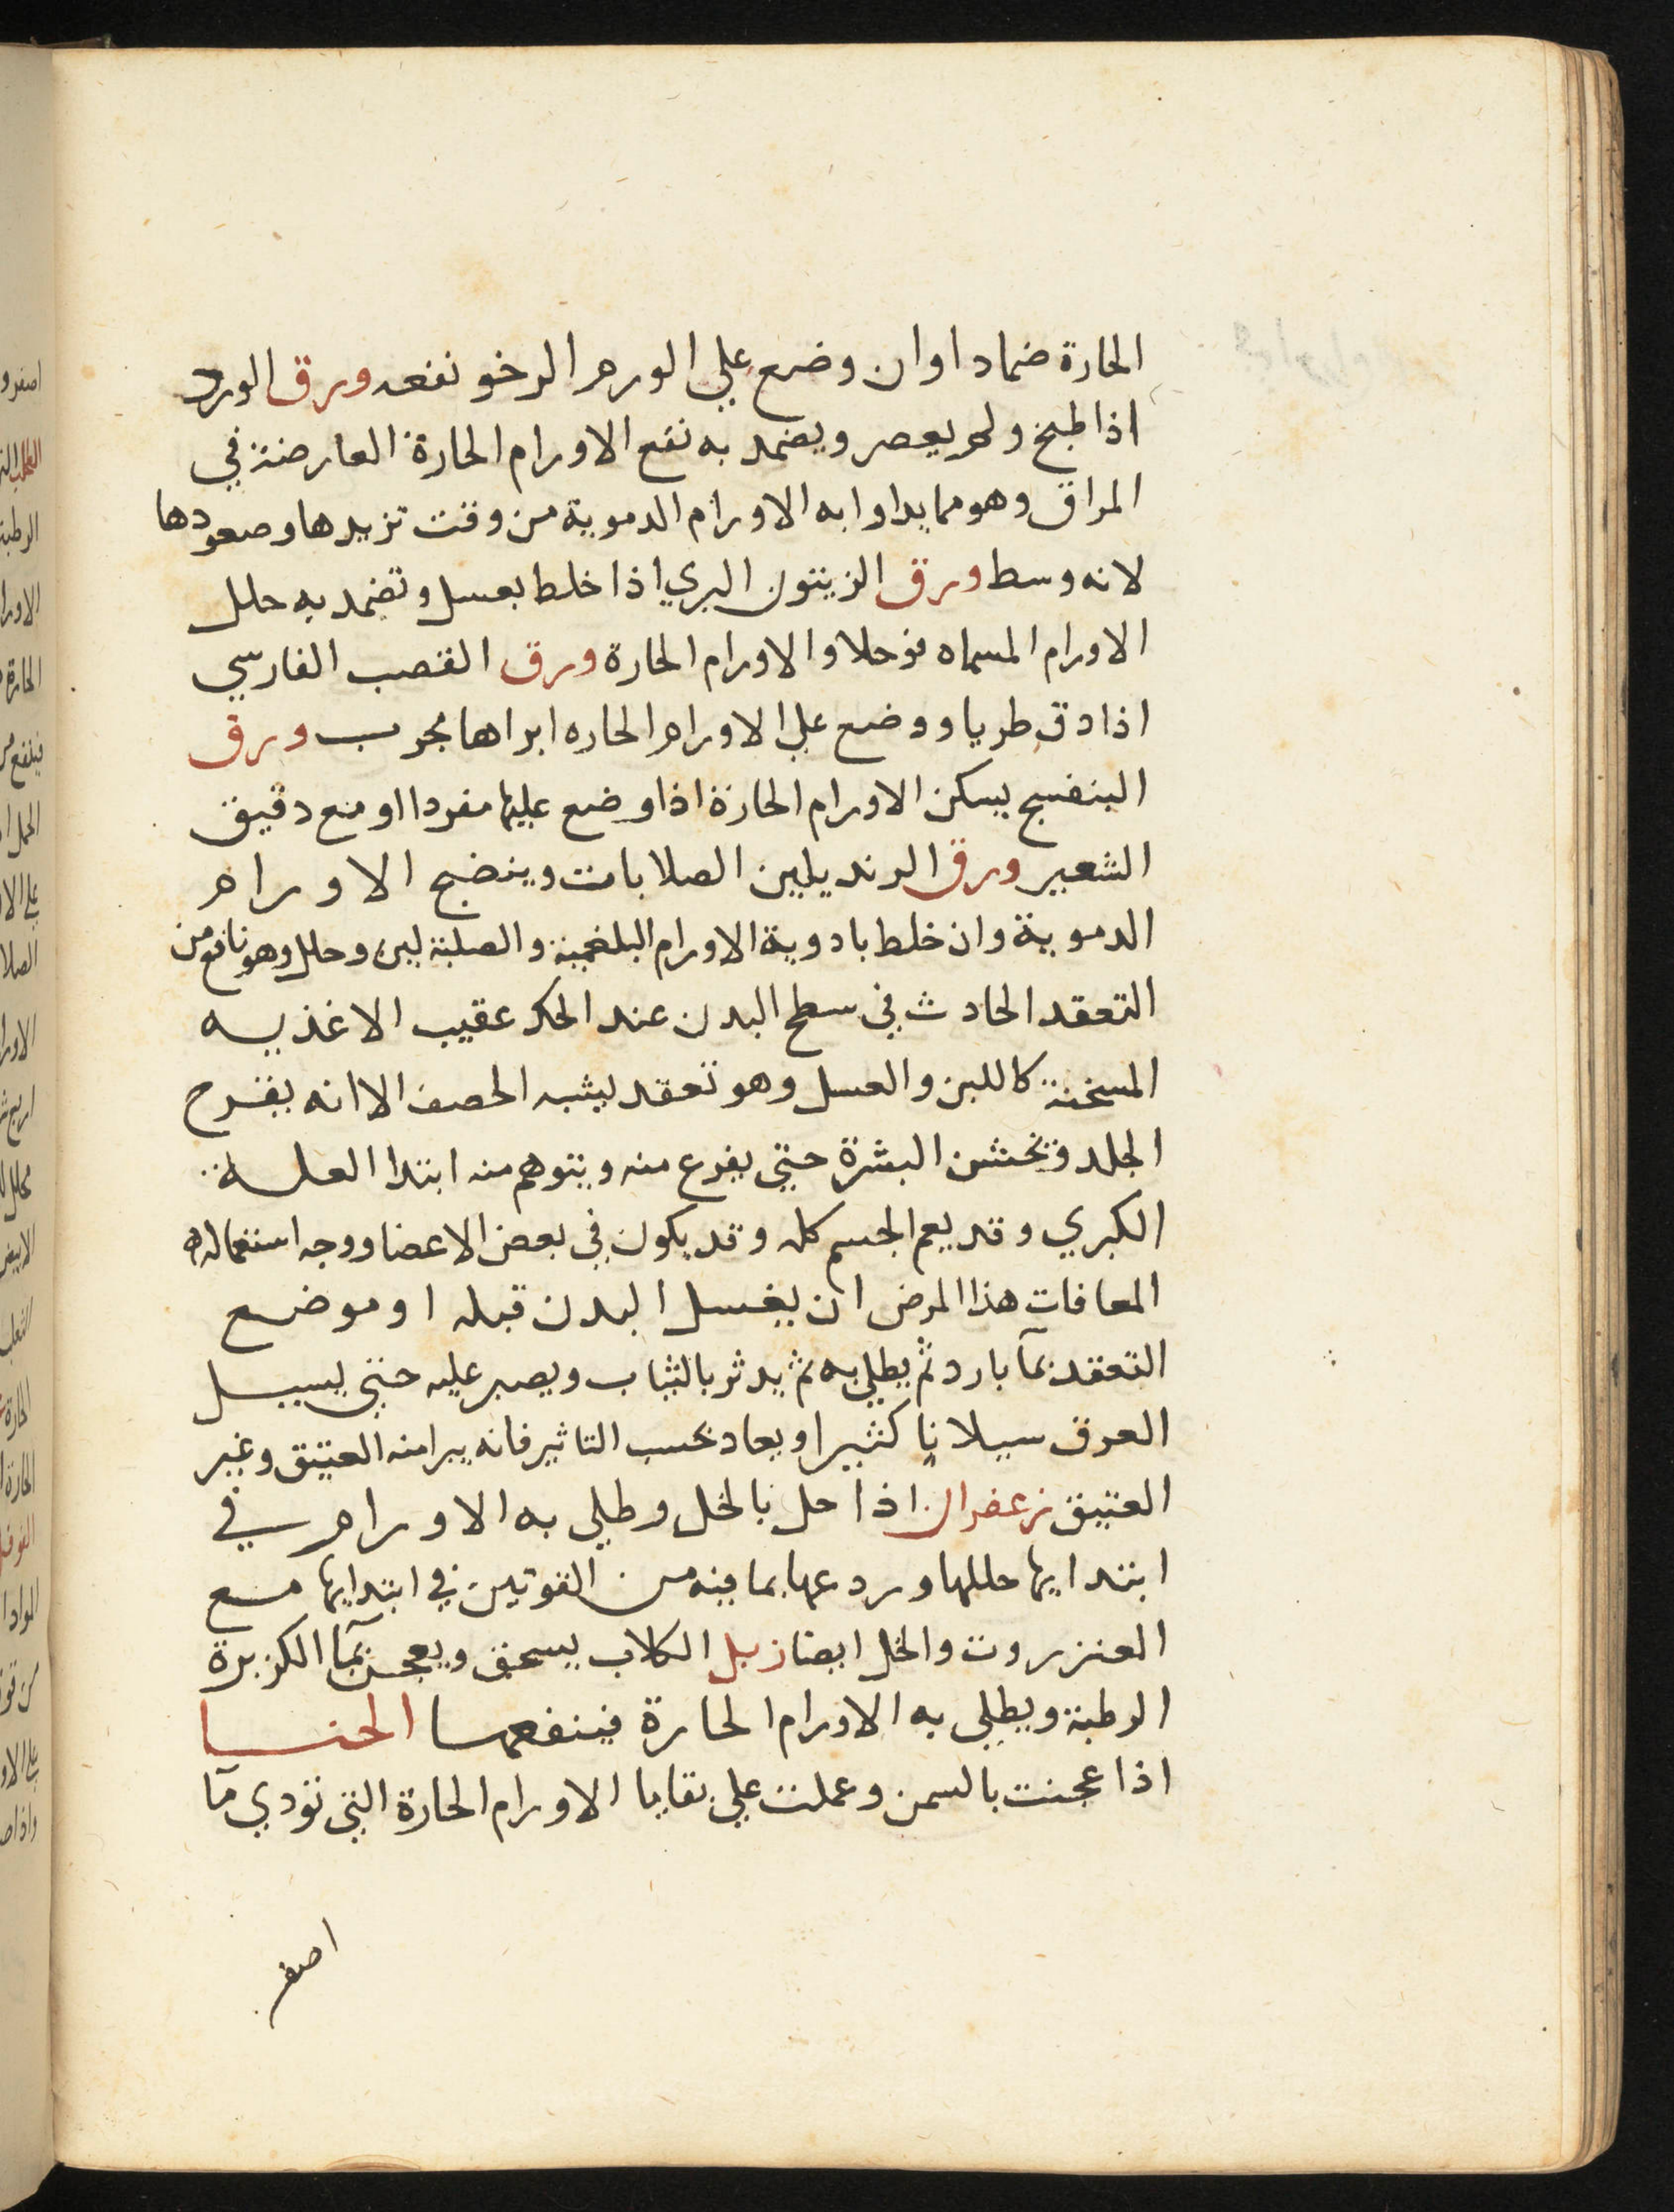 الحارة ضمادا وان وضع علي الورم الرخو نفعه ورق الورد
اذا طبخ ولم يعصر ويضمد به نفع الاورام الحارة العارضة في
المراق وهو مما يداوا به الاورام الدموية من وقت تزيدها وصعودها
لانه وسط ورق الزيتون البري اذا خلط بعسل وتضمد به حلل
الاورام المسماه فوحلا والاورام الحارة ورق القصب الفارسي
اذا دق طريا ووضع علي الاورام الحاره ابراها مجرب ورق
البنفسج يسكن الاورام الحارة اذا وضع عليها مفردا او مع دقيق
الشعير ورق الرند يلين الصلابات وينضج الاورام
الدموية وان خلط بادوية الاورام البلغمية والصلبة لين وحلل وهو نافع من
التعقد الحادث في سطح البدن عند الحك عقيب الاغذيه
المسخنة كاللبن والعسل وهو تعقد يشبه الحصف الا انه يقرح
الجلد وتخشن البشرة حتي يفزع منه ويتوهم منه ابتدا العلة
الكبري وقد يعم الجسم كله وقد يكون في بعض الاعضا ووجه استعماله
المعافات هذا المرض ان يغسل البدن قبله او موضع
التعقد بمآ بارد ثم يطلي به ثم يدثر بالثياب ويصبر عليه حتي يسيل
العرق سيلانا كثيرا ويعاد بحسب التاثير فانه يبرا منه العتيق وغير
العتيق زعفران اذا حل بالخل وطلي به الاورام في
ابتدايها حللها وردعها بما فيه من القوتين في ابتدايها مع
العنزروت والخل ايضا زبل الكلاب يسحق ويعجن بمآ الكزبرة
الرطبة ويطلي به الاورام الحارة فينفعها الحنا
اذا عجنت بالسمن وعملت علي بقايا الاورام الحارة التي تودي مآ
اصفر